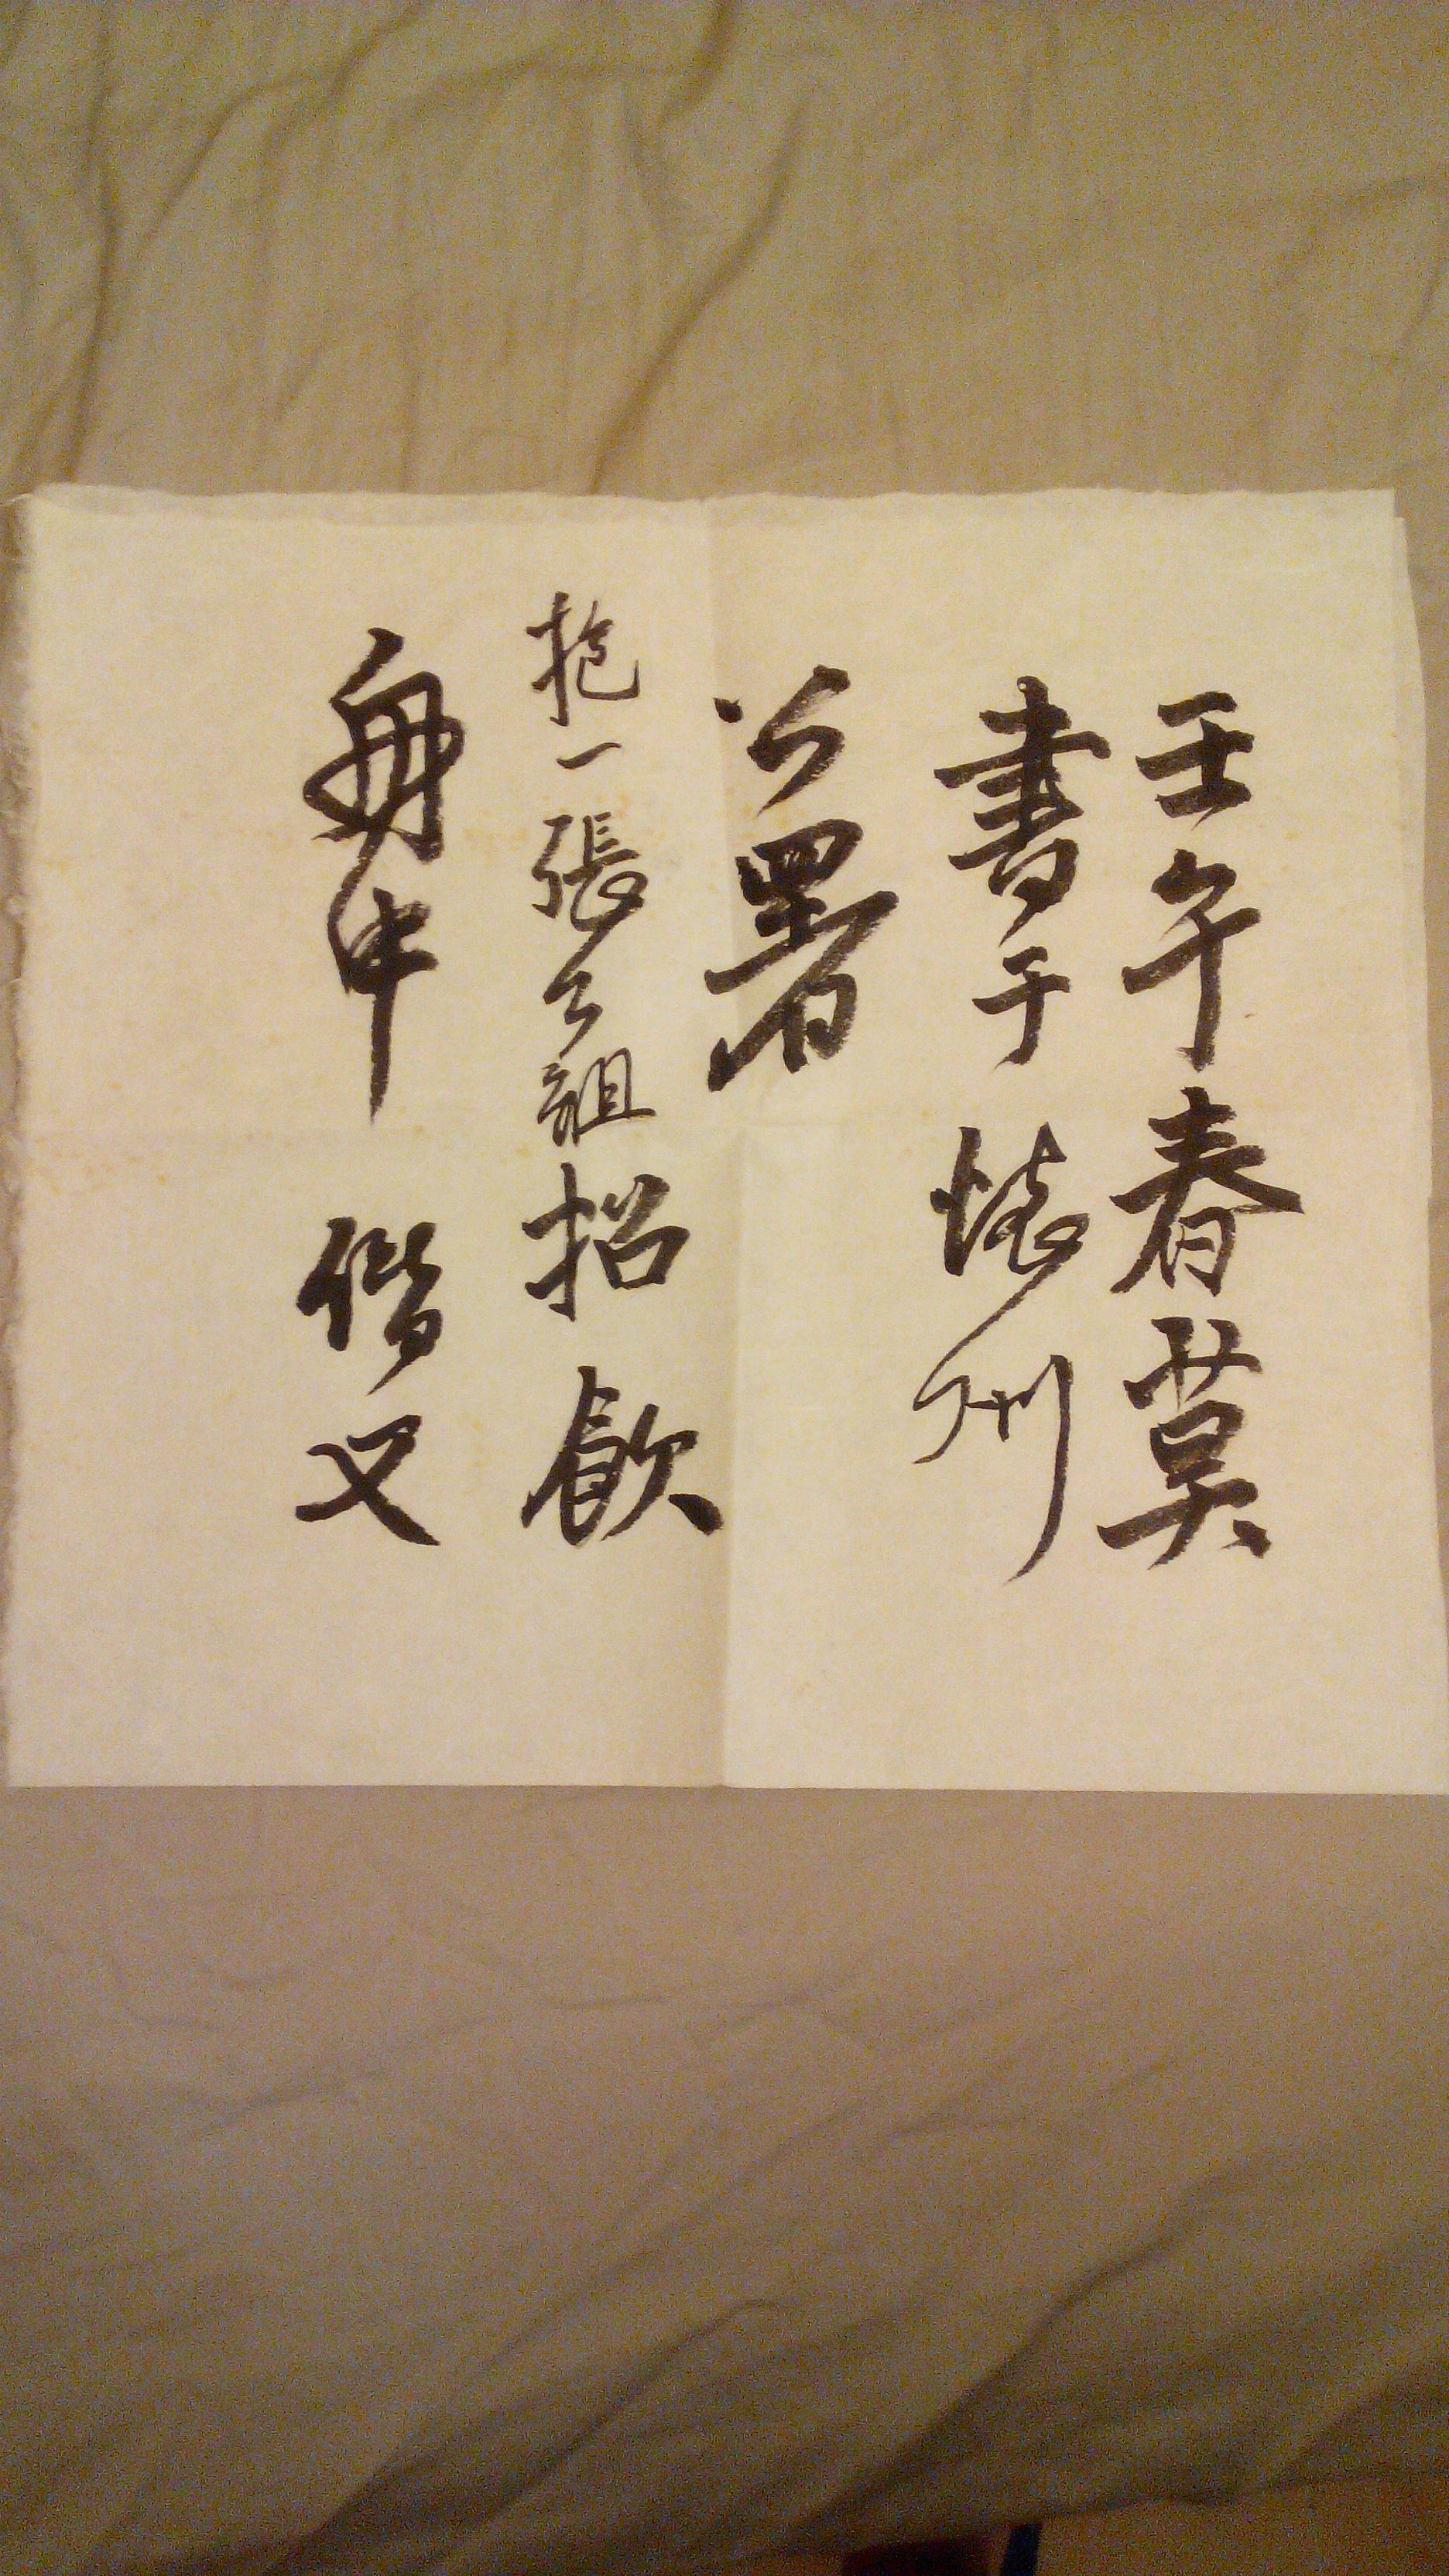 壬午春莫
書于懐州
公署
抱一張公詔招飲
舟中偕又